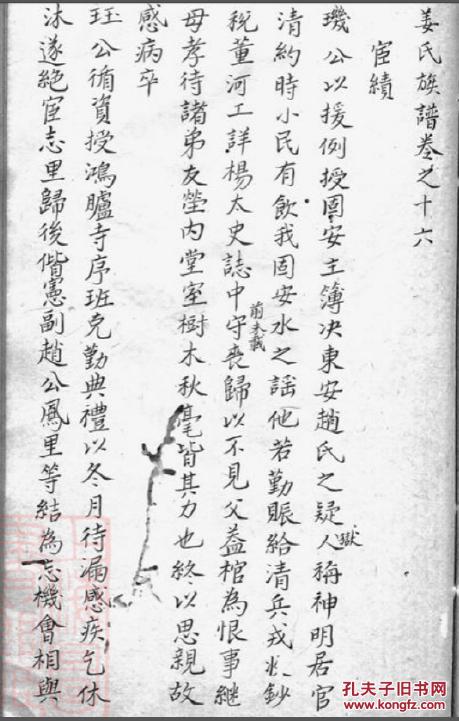 姜氏族譜卷之十六
宦績
璣公以援例授固安主簿决東安趙氏之疑獄人稱神明居官
清約時小民有飲我固安水之謡他若勤賑給清兵戎 鈔
稅董河工詳楊太史誌中前未載守喪歸以不見父蓋棺為恨事継
母孝待諸弟友塋内堂室樹木秋毫皆其力也終以思親故
感病卒
珏公循資授鴻臚寺序班克勤典禮以冬月待漏感疾乞休
沐遂絶宦志里歸後偕憲副趙公鳳里等結為忘機會相與
孔夫子旧书网
www.kongfz.com